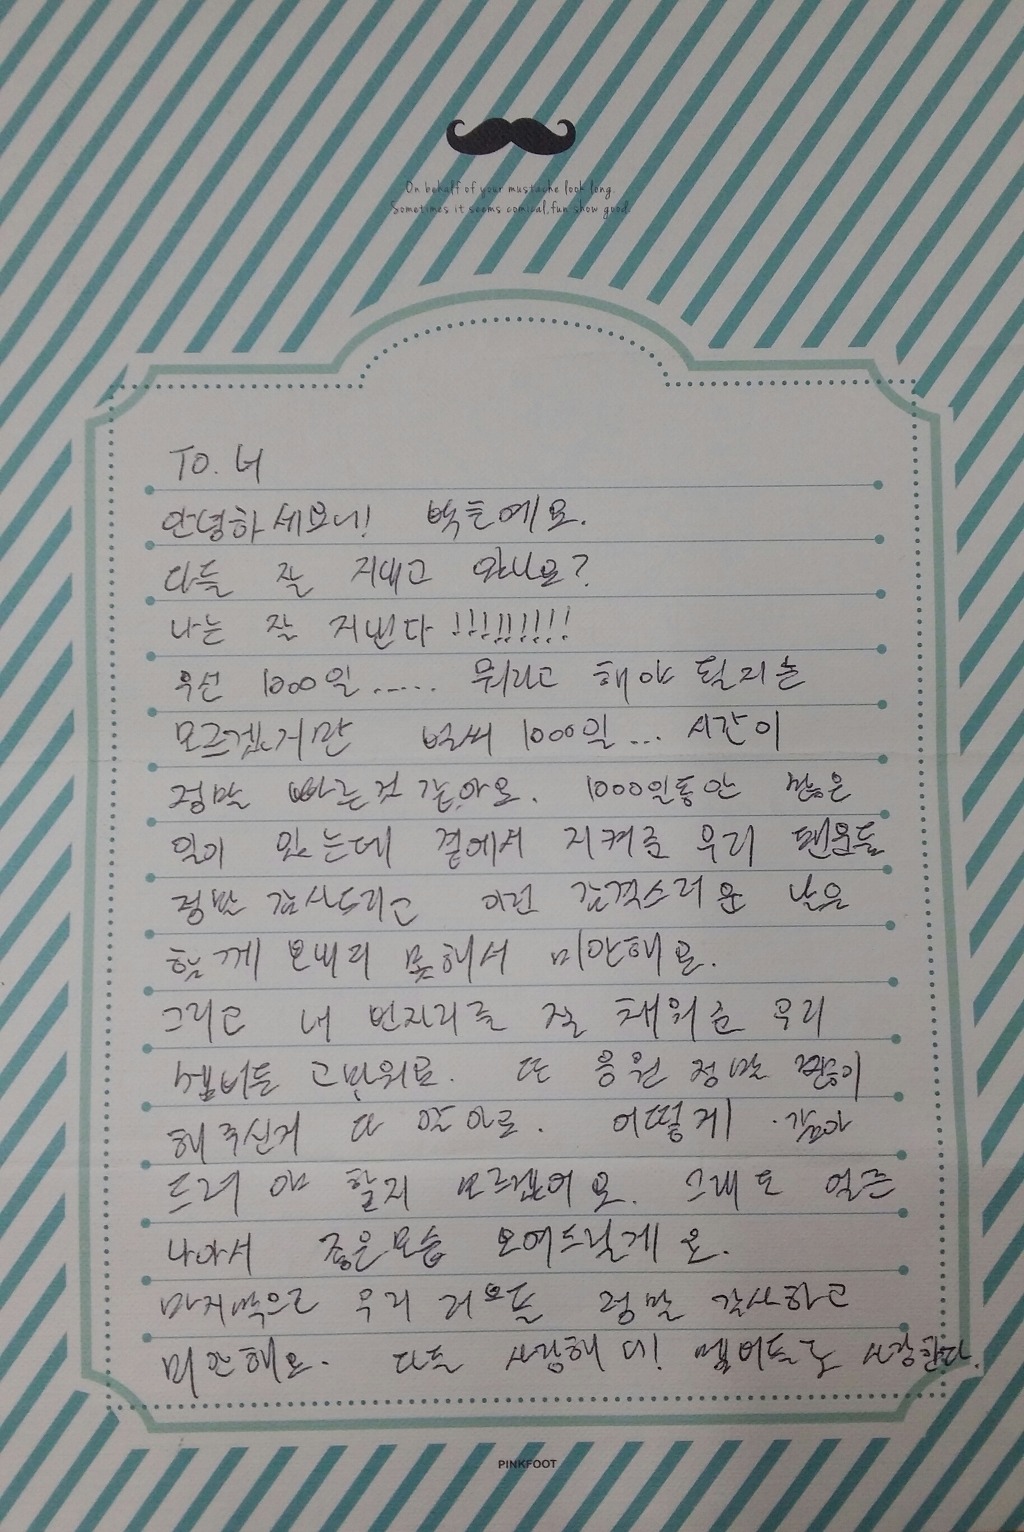 On behalf of your mustache look long.
Sometimes it seems comical, fun show good.
TO. 너
안녕하세요! 박훈에요.
다들 잘 지내고 있나요?
나는 잘 지낸다 !!!!!!!!!
우선 1000일..... 뭐라고 해야 될지는
모르겠지만 벌써 1000일... 시간이
정말 빠른것 같아요. 1000일동안 많은
일이 있는데 곁에서 지켜준 우리 팬분들
정말 감사드리고 이런 감격스러운 날을
함께 보내지 못해서 미안해요.
그리고 내 빈자리를 잘 채워준 우리
멤버들 고마워요. 또 응원 정말 많이
해주신거 다 알아요. 어떻게 갚아
드려야 할지 모르겠어요. 그래도 얼른
나아서 좋은모습 보여드릴게요.
마지막으로 우리 러브들 정말 감사하고
미안해요. 다들 사랑해! 멤버들도 사랑한다.
PINKFOOT